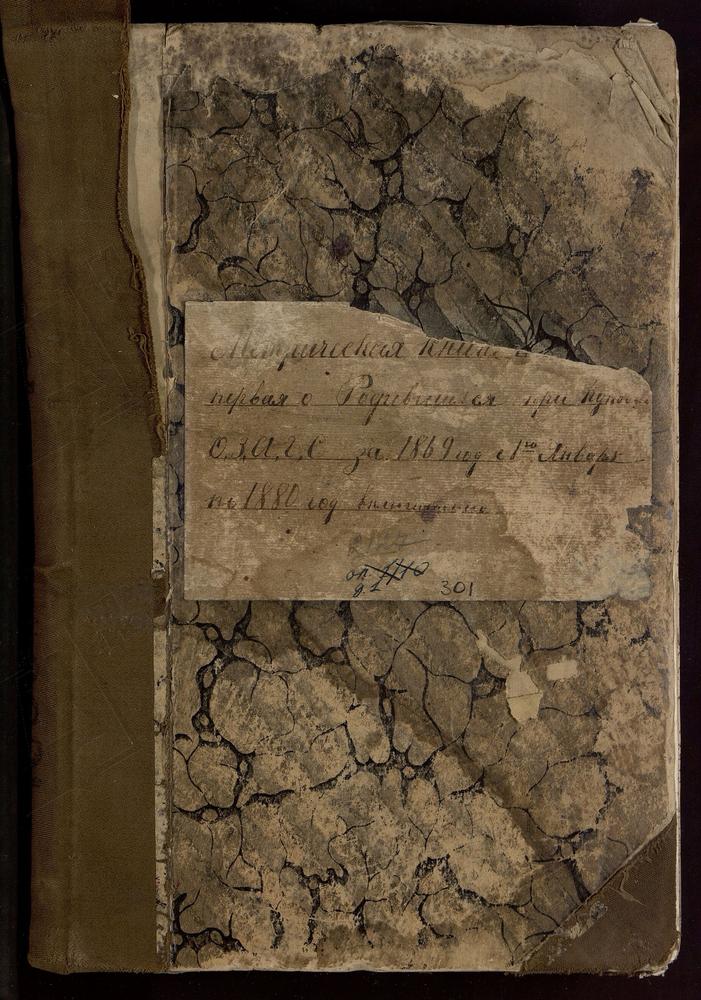 Метрическая книга
первая о Родившихся при
О.З.А.Г.С за 1869 год с 1го Января
по 1880 год включительно
оп 1110
д 1 301